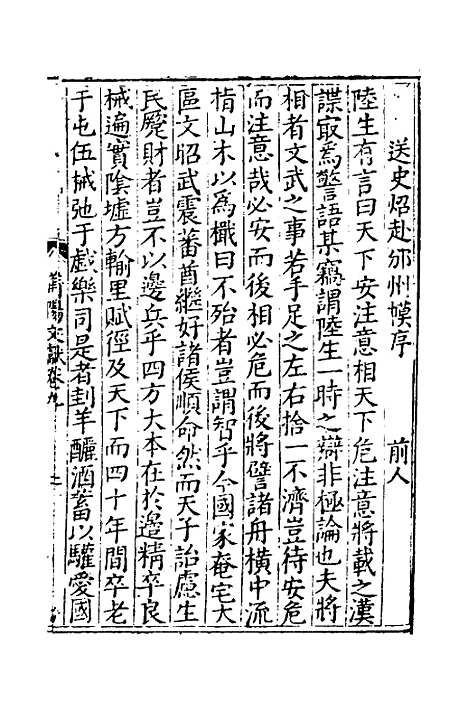 送史炤赴邠州幙序　前人
陸生有言曰天下安注意相天下危注意將載之漢
諜㝡爲警語某竊謂陸生一時之辯非極論也夫將
相者文武之事若手足之左右捨一不濟豈待安危
而注意哉必安而後相必危而後將譬諸舟橫中流
楫山木以為檝曰不殆者豈謂智乎今國家奄宅大
區文昭武震蕃酋繼好諸侯順命然而天子詒慮生
民蹷財者豈不以邊兵乎四方大本在於邉精卒良
械遍實陰墟方輸里賦徑及天下而四十年間卒老
于屯伍械弛于戲樂司是者刲羊釃酒蓄以驩愛國
莆陽文獻卷九